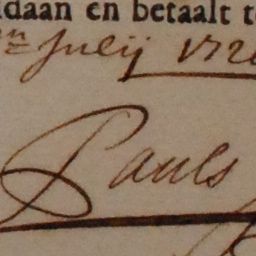 daan en betaalt t
en Julij 172
Pauls